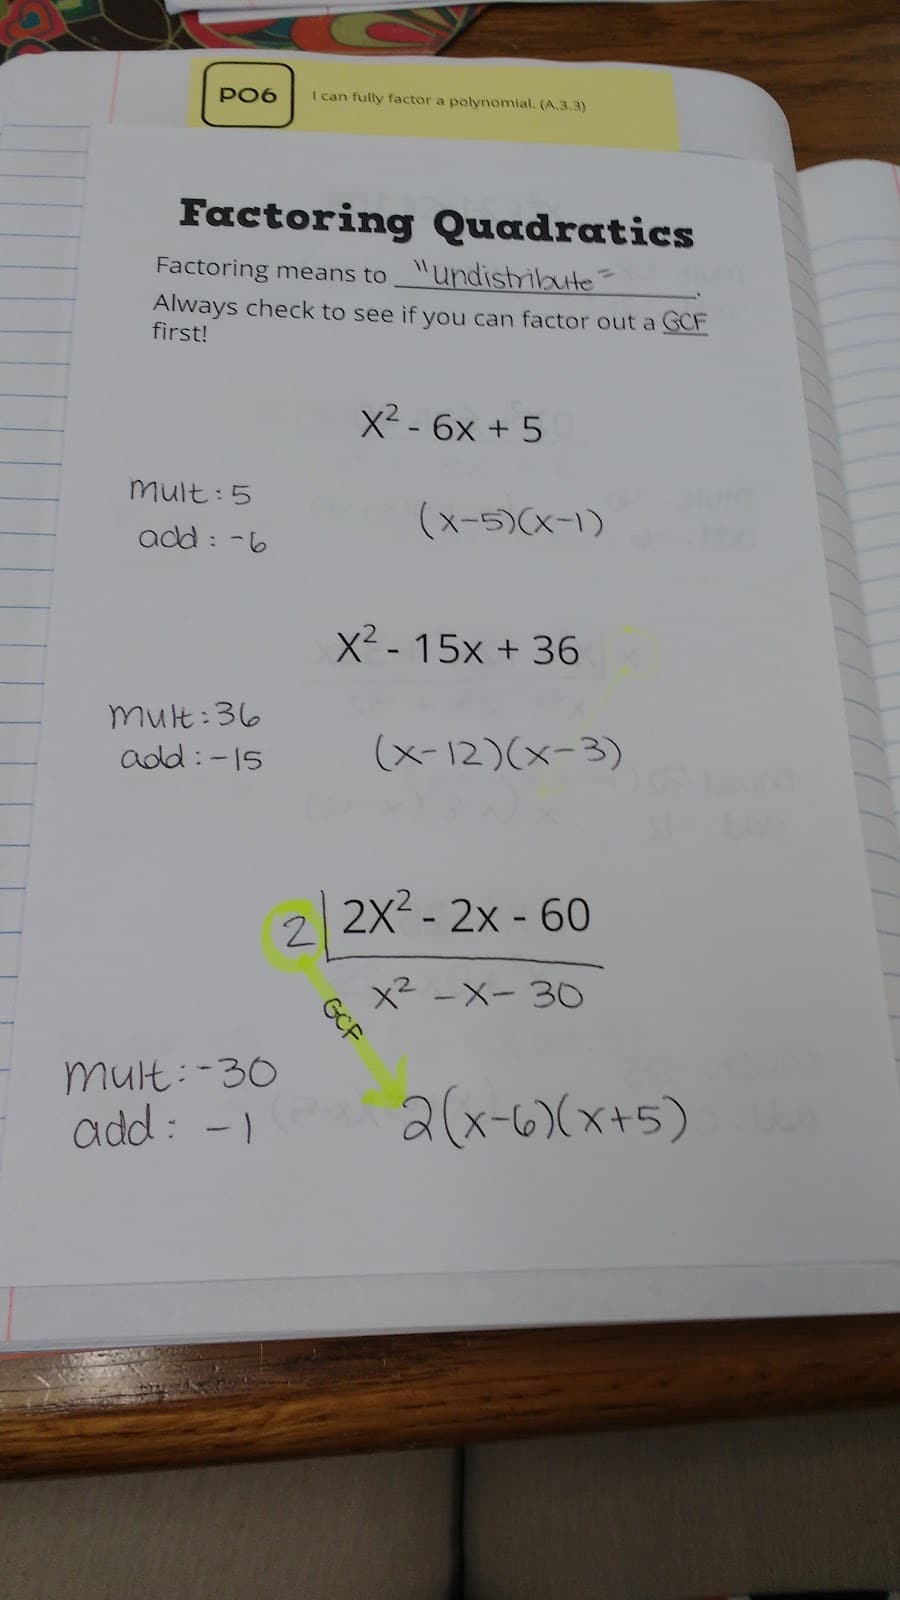 PO6 I can fully factor a polynomial. (A.3.3)
Factoring Quadratics
Factoring means to "undistribute".
Always check to see if you can factor out a GCF
first!
x² - 6x + 5
mult: 5
add: -6
(x-5)(x-1)
x² - 15x + 36
mult: 36
add: -15
(x-12)(x-3)
2 2x² - 2x - 60
x² - x - 30
GCF
mult: -30
add: -1
2(x-6)(x+5)